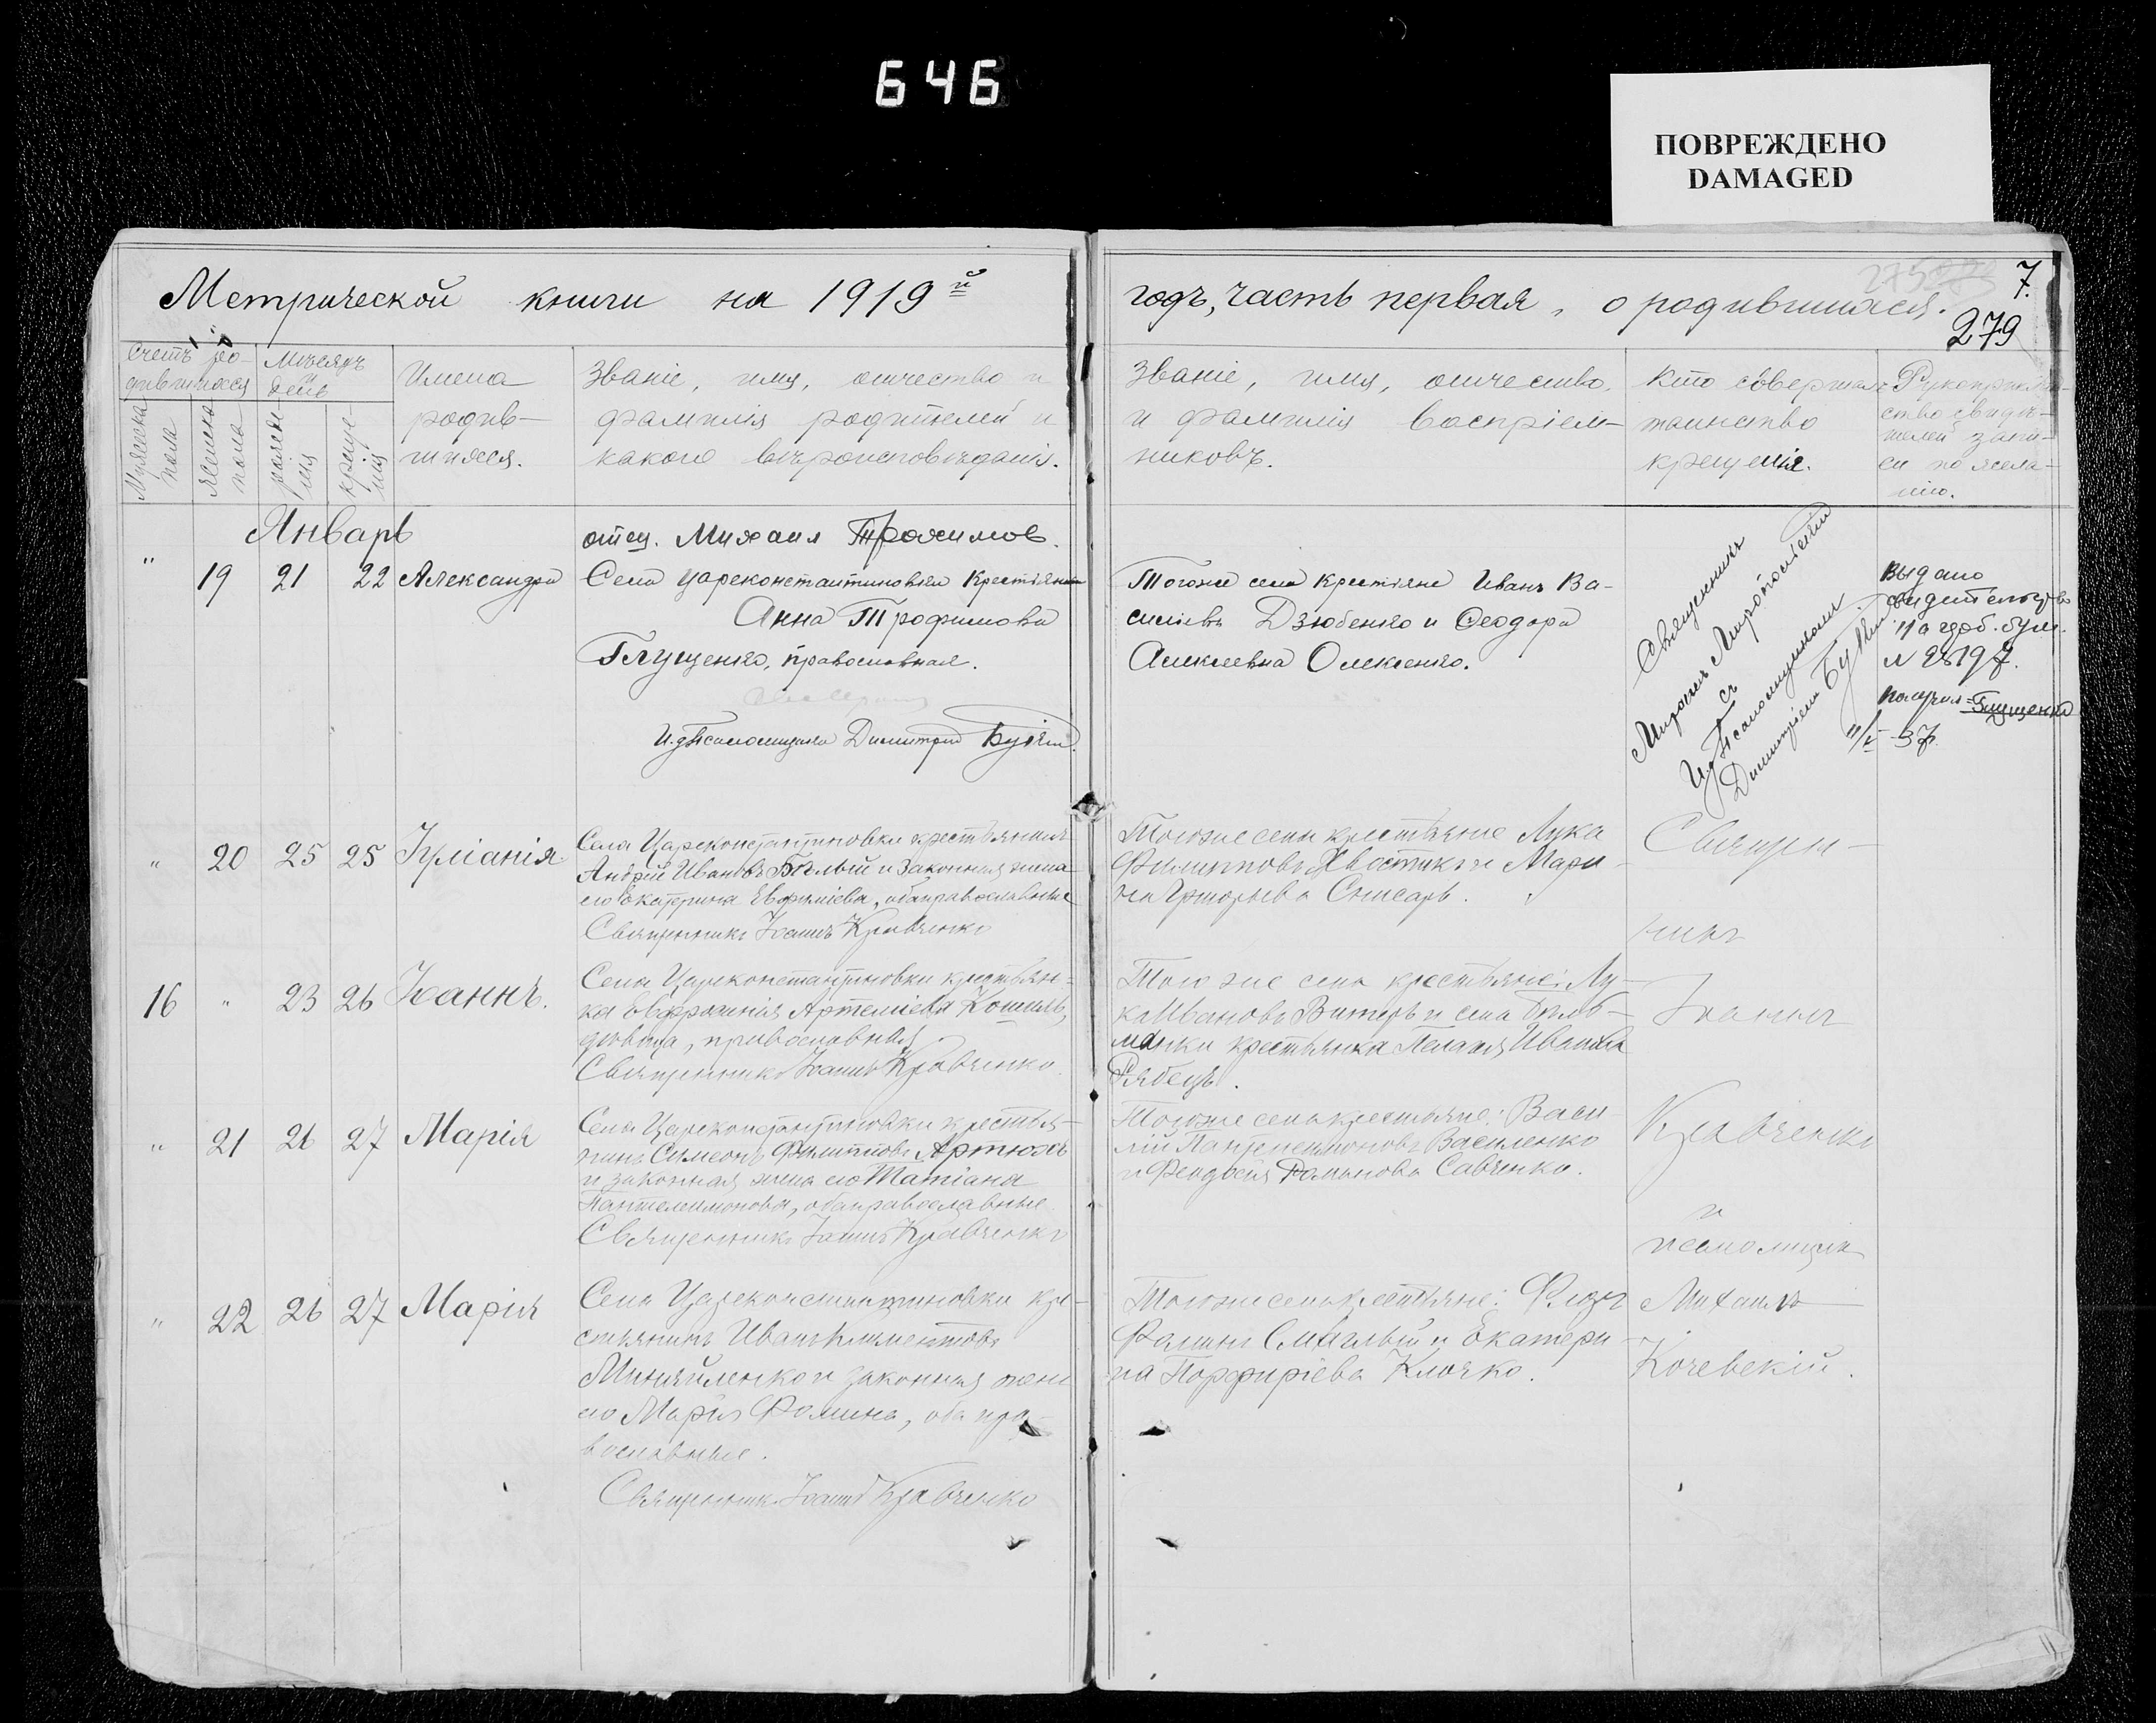 646
ПОВРЕЖДЕНО
DAMAGED
Метрической книги на 1919й
годъ, часть первая, о родившихся.
7.
279
Счетъ ро-
дившихся
Мѣсяцъ
и
день
Мужеска
пола
Женска
пола
рожде-
нія
креще-
нія
Имена
родив-
шихся.
Званіе, имя, отчество и
фамилія родителей и
какого вѣроисповѣданія.
Званіе, имя, отчество,
и фамилія воспріем-
никовъ.
Кто совершалъ
таинство
крещенія.
Рукоприклад-
ство свидѣ-
телей запи-
си по жела-
нію.
Январь
отец. Михаил Трохимов.
" 19 21 22 Александра
Села Цареконстантиновки Крестьянка
Анна Трофимова
Глущенко, православная.
И.д. Псаломщика Димитрий
Тогоже села крестьяне Иванъ Ва-
сильевъ Дзюбенко и Феодора
Алексеевна Олексенко.
Священникъ
Миронъ
съ
И.д. Псаломщикомъ
Димитріем
Выдано
свидетельство
№
получил Глущенко
11/V-37.
" 20 25 25 Іуліанія
Села Цареконстантиновки крестьянинъ
Андрей Ивановъ Бѣлый и законная жена
его Екатерина Евфиміева, оба православные
Священникъ Іоаннъ Кравченко
Тогоже села крестьяне Лука
Филипповъ Хвостикъ и Мари-
на Григорьева Слисарь.
Священ-
никъ
16 " 23 26 Іоаннъ.
Села Цареконстантиновки крестьян-
ка Евфросинія Артеміева Кошель,
дѣвица, православная.
Священникъ Іоаннъ Кравченко.
Тогоже села крестьяне: Лу-
ка Ивановъ Витеръ и села Бѣль-
манки крестьянка Пелагія Иванова
Рябецъ.
Іоаннъ
" 21 26 27 Марія
Села Цареконстантиновки крестья-
нинъ Симеонъ Филипповъ Артюхъ
и законная жена его Татіана
Пантелеимонова, оба православные
Священникъ Іоаннъ Кравченко
Тогоже села крестьяне: Васи-
лій Пантелеимоновъ Василенко
и Феодосія Романова Савченко.
Кравченко
и
псаломщикъ
" 22 26 27 Марія
Села Цареконстантиновки кре-
стьянинъ Иванъ Климентовъ
Миняйленко и законная жена
его Марія Фомина, оба пра-
вославные.
Священникъ Іоаннъ Кравченко
Тогоже села крестьяне: Флоръ
Фоминъ Смаглый и Екатери-
на Порфиріева Клочко.
Михаилъ
Кочевскій.